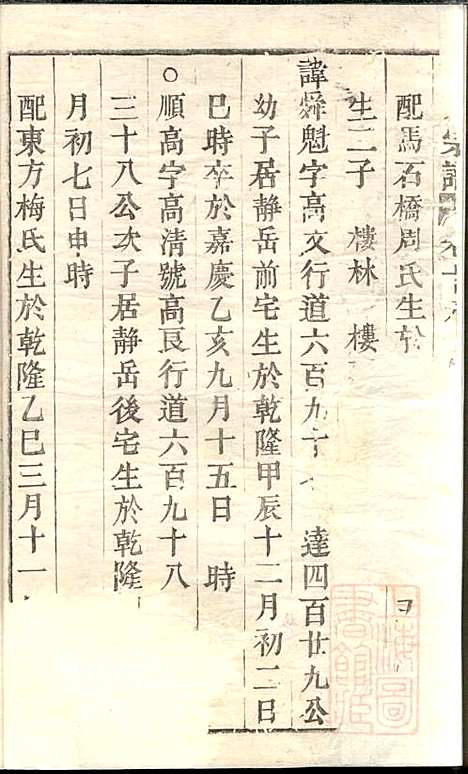 配馬石橋周氏生於
生二子 樓林 樓
諱舜魁字高文行道六百九十 達四百廿九公
幼子居靜岳前宅生於乾隆甲辰十二月初二日
巳時卒於嘉慶乙亥九月十五日 時
○順高字高清號高良行道六百九十八
三十八公次子居靜岳後宅生於乾隆
月初七日申時
配東方梅氏生於乾隆乙巳三月十一
上海圖書館藏